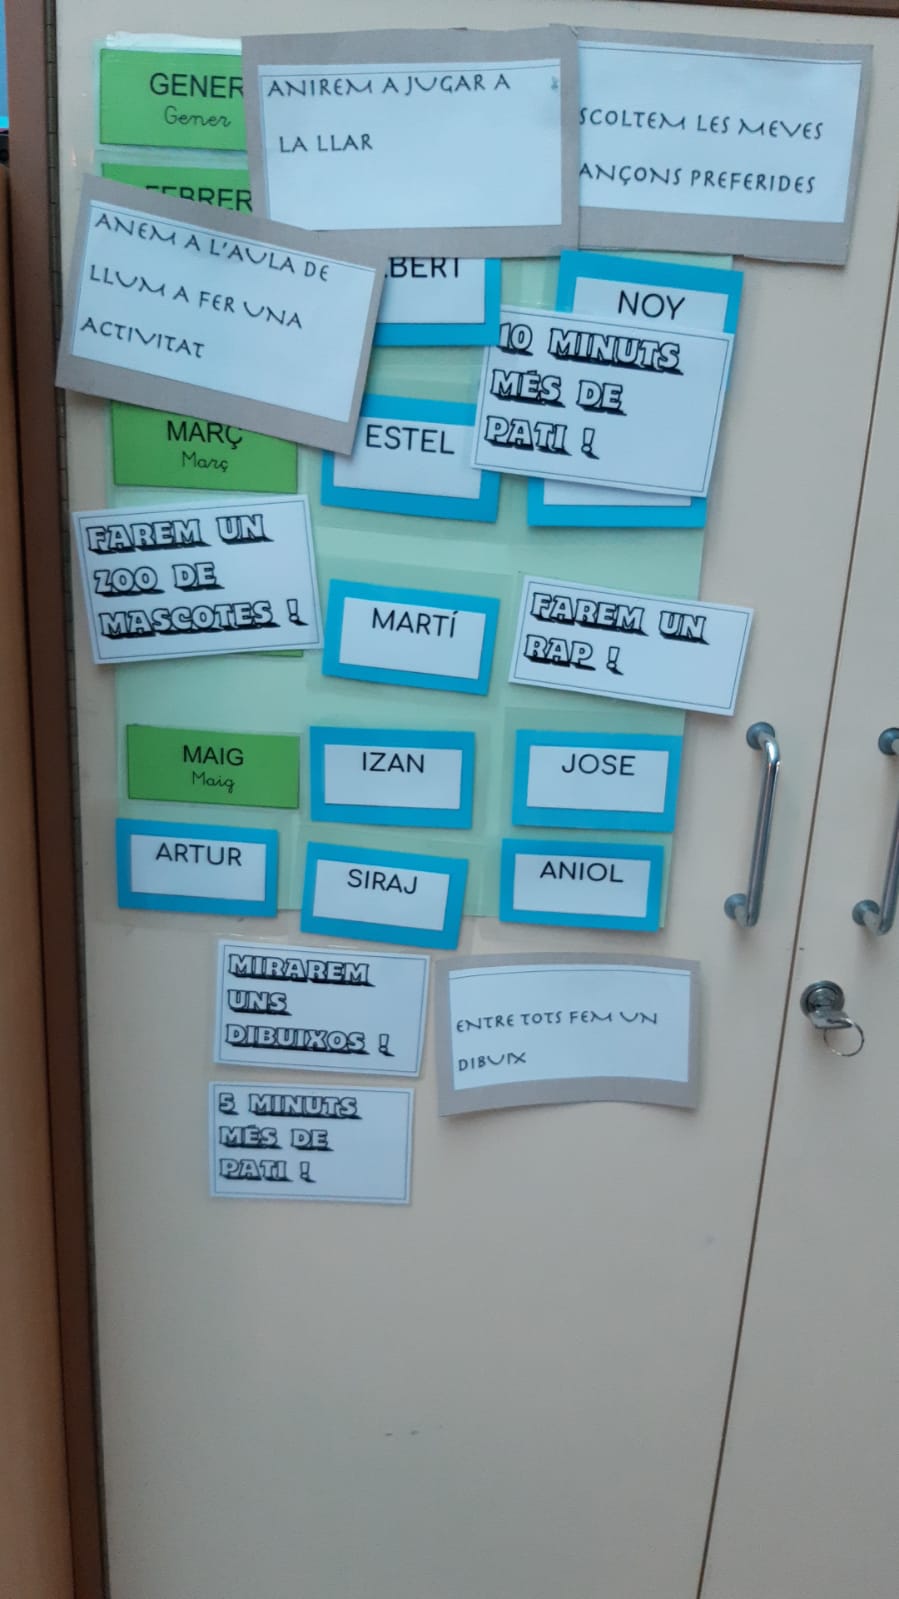 GENER
Gener
ANIREM A JUGAR A
LA LLAR
SCOLTEM LES MEVES
ANÇONS PREFERIDES
FEBRER
ANEM A L'AULA DE
LLUM A FER UNA
ACTIVITAT
BERT
NOY
10 MINUTS
MÉS DE
PATI !
MARÇ
Març
ESTEL
FAREM UN
ZOO DE
MASCOTES !
MARTÍ
FAREM UN
RAP !
MAIG
Maig
IZAN
JOSE
ARTUR
SIRAJ
ANIOL
MIRAREM
UNS
DIBUIXOS !
ENTRE TOTS FEM UN
DIBUIX
5 MINUTS
MÉS DE
PATI !